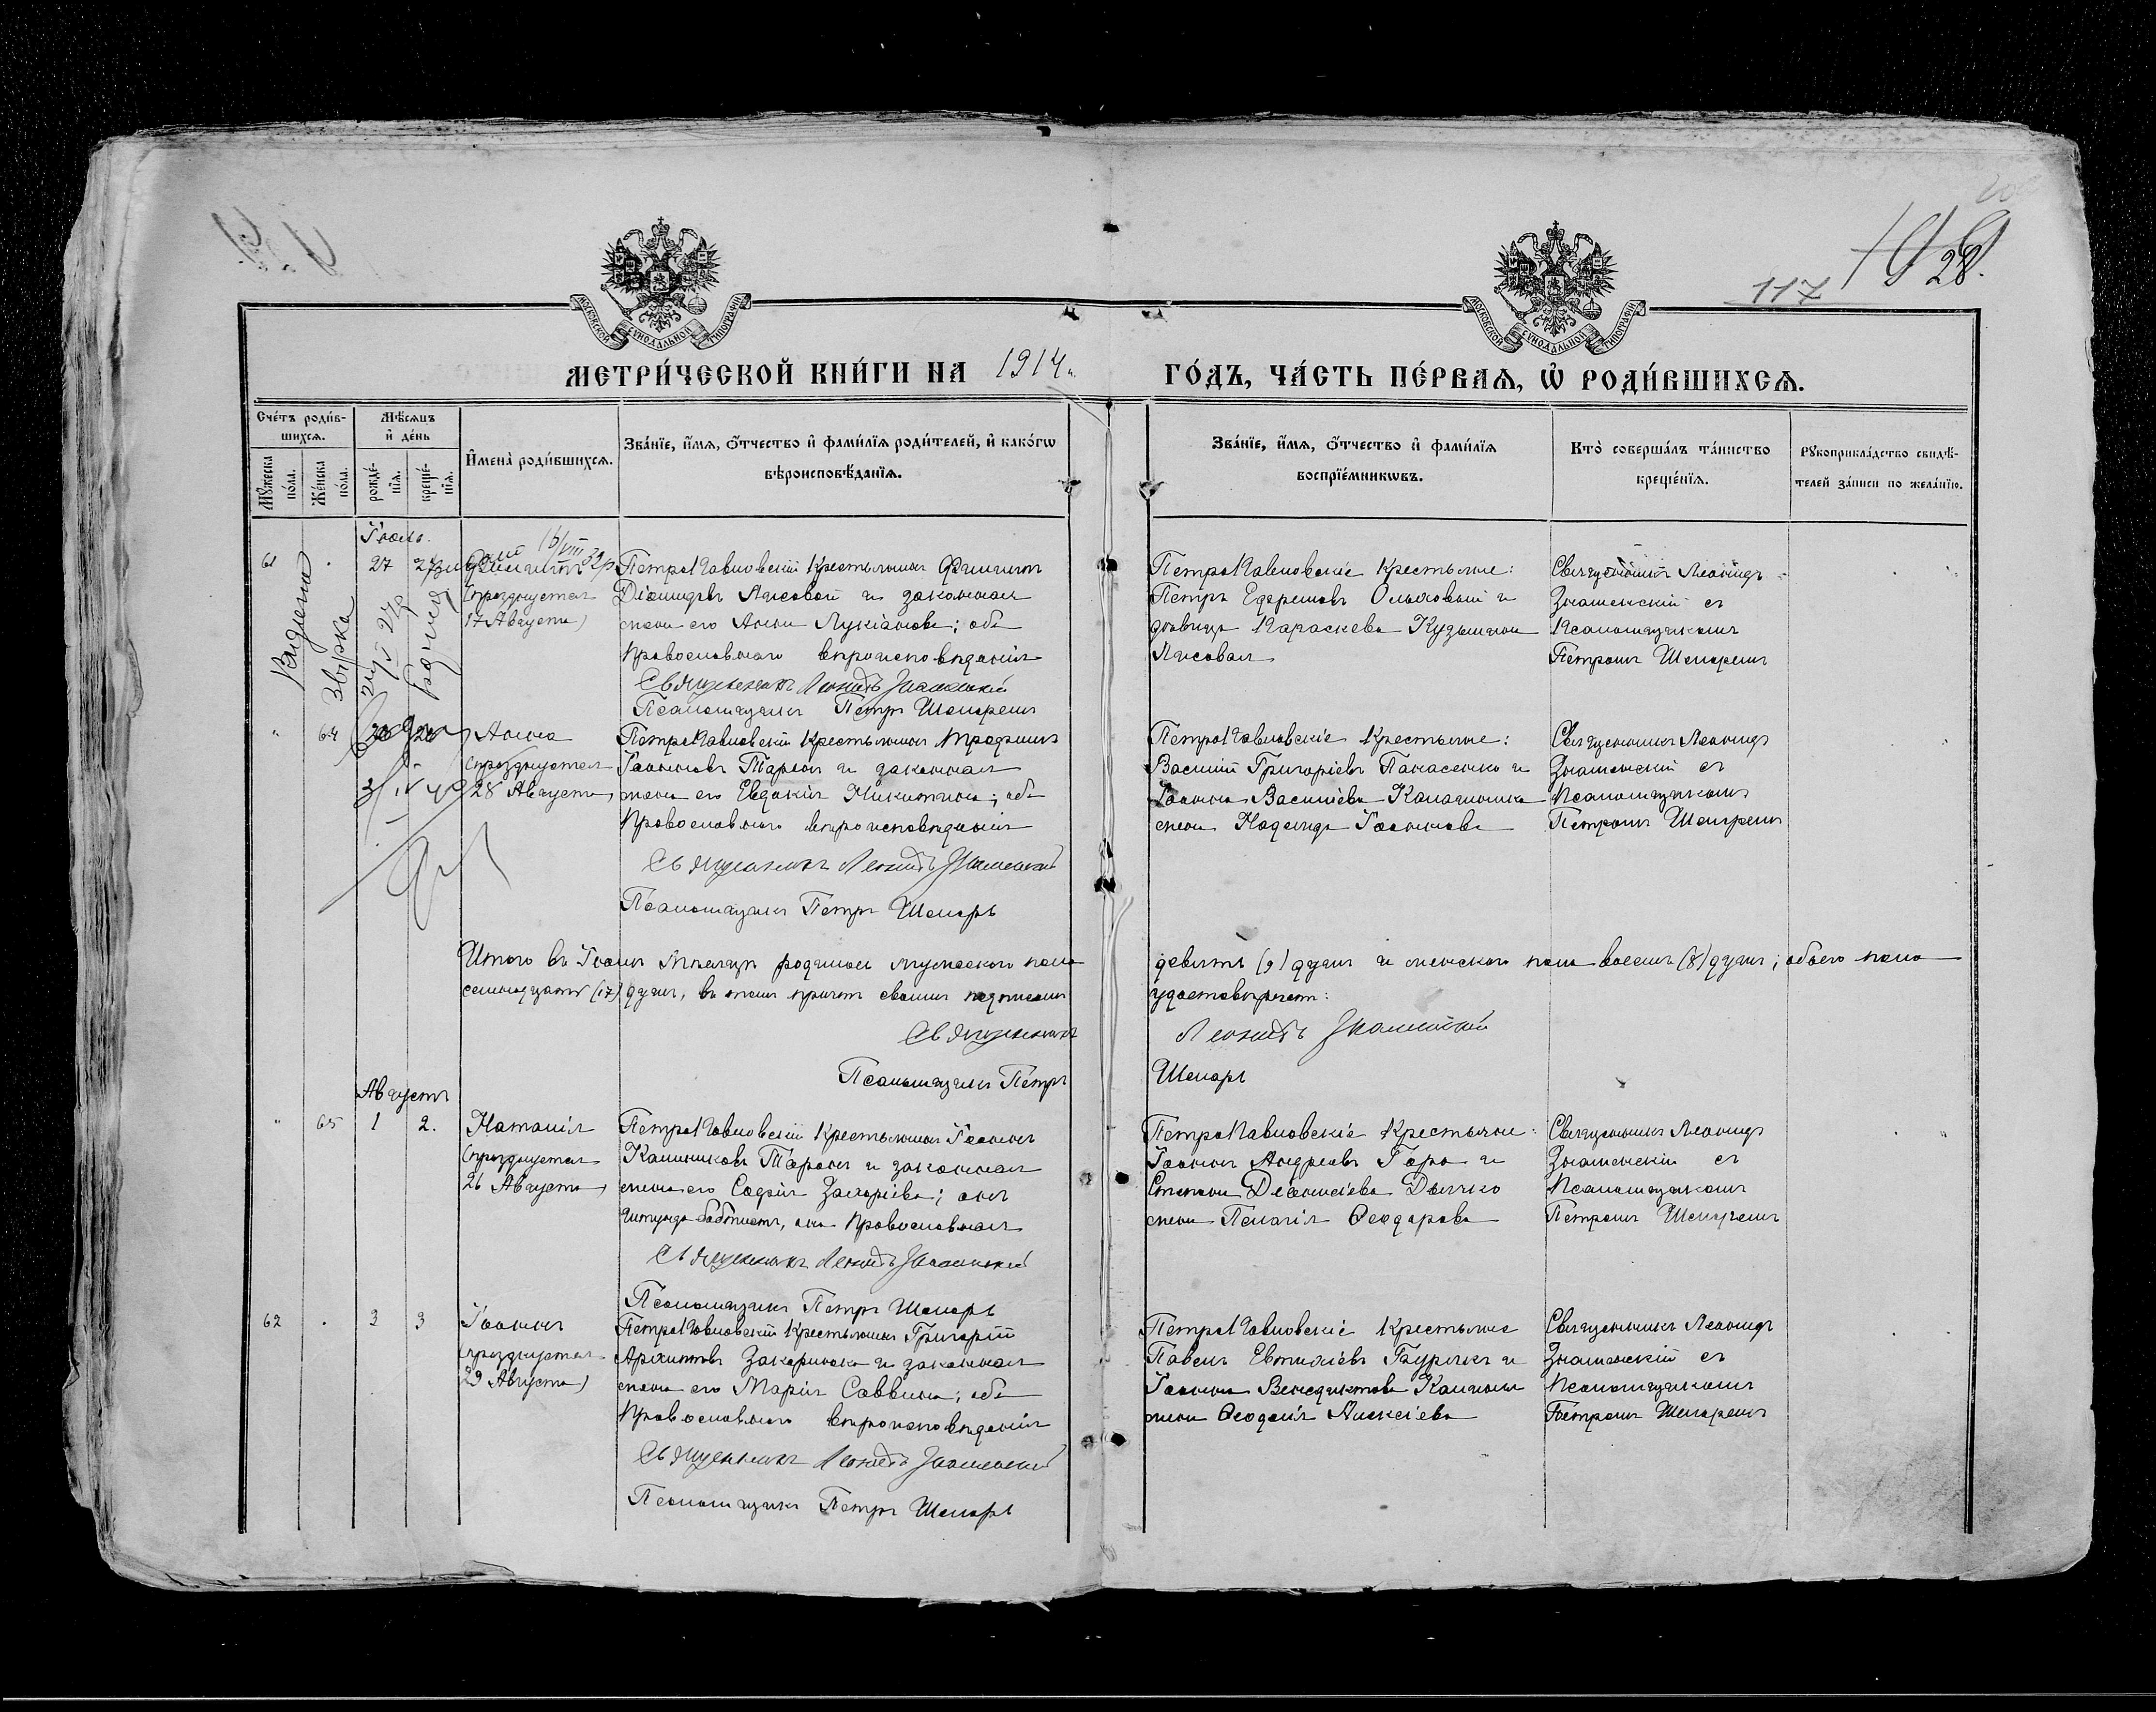 28.
117
МОСКОВСКОЙ СѴНОДАЛЬНОЙ ТИПОГРАФІИ
МОСКОВСКОЙ СѴНОДАЛЬНОЙ ТИПОГРАФІИ
МЕТРИ́ЧЕСКОЙ КНИ́ГИ НА 1914 г. ГО́ДЪ, ЧА́СТЬ ПЕ́РВАѦ, Ѡ҆ РОДИ́ВШИХСѦ.
Сче́тъ роди́в-
шихсѧ.
Мꙋ́жеска по́ла.
Же́нска по́ла.
Мѣ́сѧцъ
и҆ де́нь
рожде́-
нїѧ.
креще́-
нїѧ.
И҆мена̀ роди́вшихсѧ.
Зва́нїе, и҆́мѧ, ѻ҆́тчество и҆ фами́лїѧ роди́телей, и҆ како́гѡ
вѣроисповѣ́данїѧ.
Зва́нїе, и҆́мѧ, ѻ҆́тчество и҆ фами́лїѧ
воспрїе́мникѡвъ.
Кто̀ соверша́лъ та́инство
креще́нїѧ.
Рꙋкоприкла́дство свидѣ́-
телей за́писи по жела́нїю.
Іюль.
61 27 27 Филиппъ
(празднуется
17 Августа)
ПетроПавловскій Крестьянинъ Филиппъ
Діомидовъ Лисовой и законная
жена его Анна Лукіанова; оба
Православнаго вѣроисповѣданія
Священникъ Леонидъ Знаменскій
Псаломщикъ Петръ Шепарь
ПетроПавловскіе Крестьяне:
Петръ Ефремовъ Ольховый и
дѣвица Параскева Кузьмина
Лисовая
Священникъ Леонидъ
Знаменскій съ
Псаломщикомъ
Петромъ Шепаремъ
64 Анна
(празднуется
28 Августа)
ПетроПавловскій Крестьянинъ Трофимъ
Іоанновъ Таранъ и законная
жена его Евдокія Никитина; оба
Православнаго вѣроисповѣданія
Священникъ Леонидъ Знаменскій
Псаломщикъ Петръ Шепарь
ПетроПавловскіе Крестьяне:
Василій Григоріевъ Панасенко и
Іоанна Васильева
жена Надежда Іоаннова
Священникъ Леонидъ
Знаменскій съ
Псаломщикомъ
Петромъ Шепаремъ
Итого въ Іюлѣ мѣсяцѣ родилось мужескаго пола девять (9) душъ и женскаго пола восемь (8) душъ; обоего пола
семнадцать (17) душъ, въ чемъ причтъ своимъ подписомъ удостовѣряетъ:
Священникъ Леонидъ Знаменскій
Псаломщикъ Петръ Шепарь
Августъ
65 1 2. Наталія
(празднуется
26 Августа)
ПетроПавловскій Крестьянинъ Іоаннъ
Калинниковъ Таранъ и законная
жена его Софія Захаріева; онъ
штундо-баптистъ, она Православная
Священникъ Леонидъ Знаменскій
Псаломщикъ Петръ Шепарь
ПетроПавловскіе Крестьяне:
Іоаннъ Андреевъ Гора и
Стефана Діонисіева Дьячко
жена Пелагія Ѳеодорова
Священникъ Леонидъ
Знаменскій съ
Псаломщикомъ
Петромъ Шепаремъ
62 3 3 Іоаннъ
(празднуется
29 Августа)
ПетроПавловскій Крестьянинъ Григорій
Архиповъ и законная
жена его Марія Саввина; оба
Православнаго вѣроисповѣданія
Священникъ Леонидъ Знаменскій
Псаломщикъ Петръ Шепарь
ПетроПавловскіе Крестьяне
Павелъ Евтихіевъ и
Іоанна Венедиктова
жена Ѳеодосія Алексіева
Священникъ Леонидъ
Знаменскій съ
Псаломщикомъ
Петромъ Шепаремъ